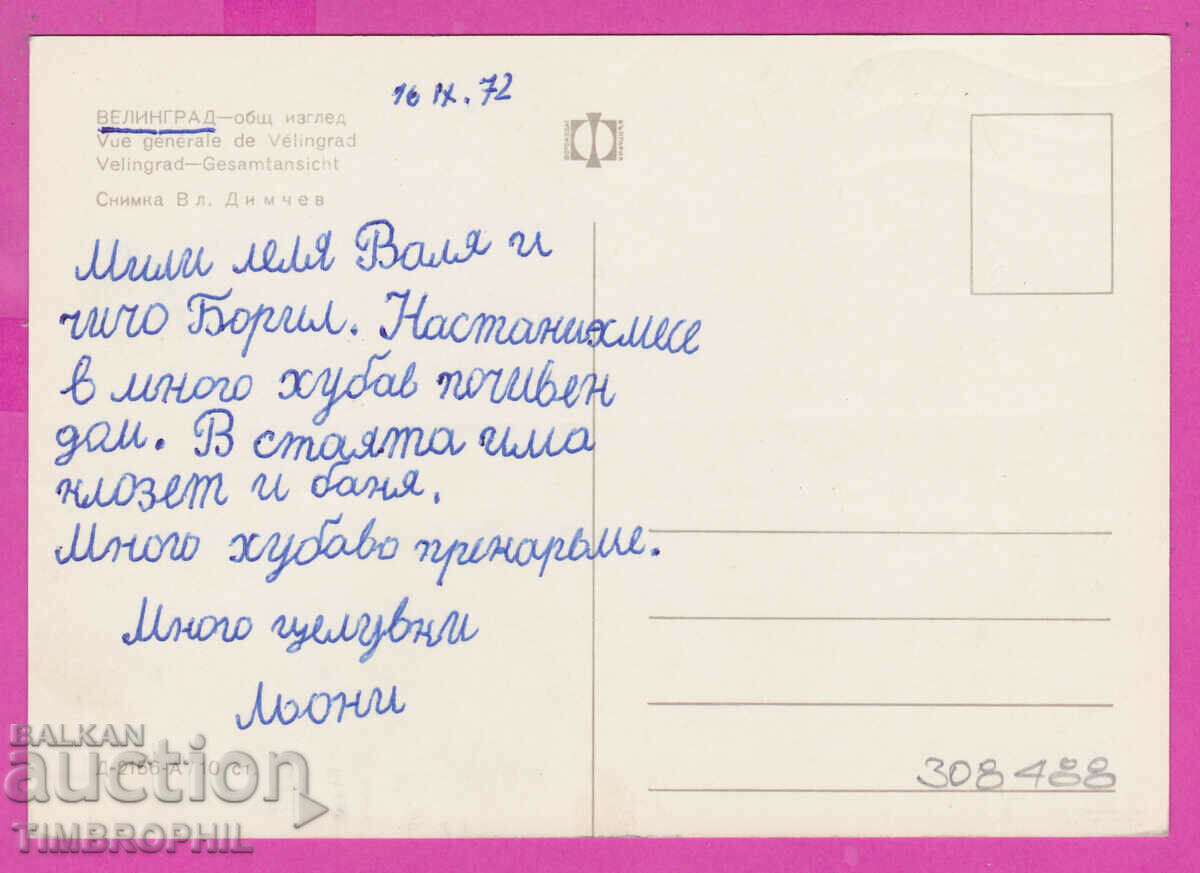 16 IX. 72
ВЕЛИНГРАД—общ изглед
Vue générale de Vélingrad
Velingrad—Gesamtansicht
Снимка Вл. Димчев
ФОТОИЗДАТ БЪЛГАРИЯ
Мили леля Валя и
чичо Борил. Настанихмесе
в много хубав почивен
дом. В стаята има
клозет и баня.
Много хубаво прекарьме.
Много целувки
Льони
Д-2156-А 10 ст.
308488
BALKAN
auction
TIMBROPHIL